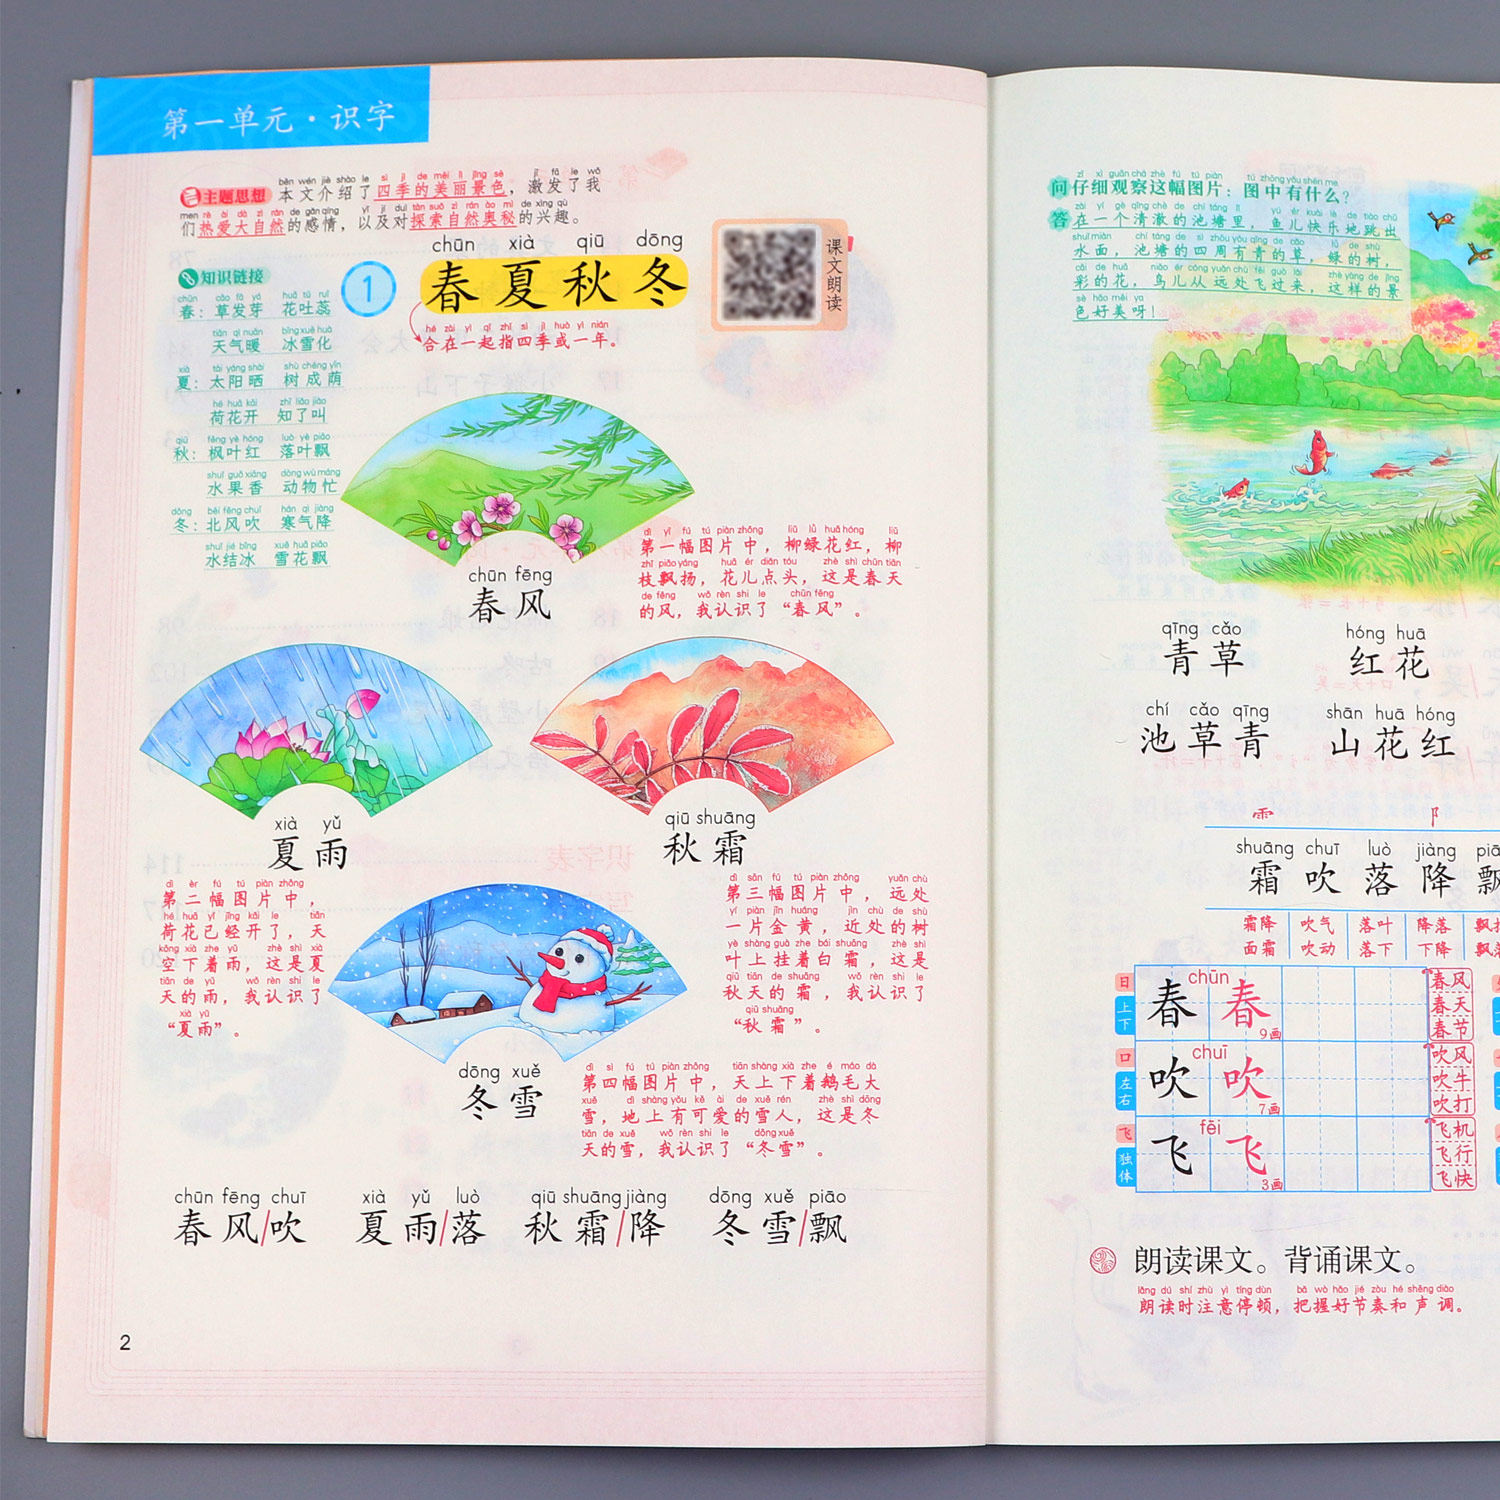 第一单元·识字
主题思想
běn wén jiè shào le sì jì de měi lì jǐng sè jī fā le wǒ
本文介绍了四季的美丽景色，激发了我
men rè ài dà zì rán de gǎn qíng yǐ jí duì tàn suǒ zì rán ào mì de xìng qù
们热爱大自然的感情，以及对探索自然奥秘的兴趣。
知识链接
春：草发芽 花吐蕊
天气暖 冰雪化
夏：太阳晒 树成荫
荷花开 知了叫
秋：枫叶红 落叶飘
水果香 动物忙
冬：北风吹 寒气降
水结冰 雪花飘
chūn xià qiū dōng
1 春夏秋冬
hé zài yì qǐ zhǐ sì jì huò yì nián
合在一起指四季或一年。
课文朗读
chūn fēng
春风
第一幅图片中，柳绿花红，柳
枝飘扬，花儿点头，这是春天
的风，我认识了“春风”。
xià yǔ
夏雨
qiū shuāng
秋霜
第二幅图片中，
荷花已经开了，天
空下着雨，这是夏
天的雨，我认识了
“夏雨”。
第三幅图片中，远处
一片金黄，近处的树
叶上挂着白霜，这是
秋天的霜，我认识了
“秋霜”。
dōng xuě
冬雪
第四幅图片中，天上下着鹅毛大
雪，地上有可爱的雪人，这是冬
天的雪，我认识了“冬雪”。
chūn fēng chuī xià yǔ luò qiū shuāng jiàng dōng xuě piāo
春风/吹 夏雨/落 秋霜/降 冬雪/飘
2
问 仔细观察这幅图片：图中有什么？
答 在一个清澈的池塘里，鱼儿快乐地跳出
水面，池塘的四周有青的草，绿的树，
彩的花，鸟儿从远处飞过来，这样的景
色好美呀！
qīng cǎo hóng huā
青草 红花
chí cǎo qīng shān huā hóng
池草青 山花红
shuāng chuī luò jiàng
霜 吹 落 降 飘
霜降 吹气 落叶 降落
面霜 吹动 落下 下降
日 上下 chūn 春 春 9画 春风 春天 春节
口 左右 chuī 吹 吹 7画 吹风 吹牛 吹打
飞 独体 fēi 飞 飞 3画 飞机 飞行 飞快
朗读课文。背诵课文。
lǎng dú shí zhù yì tíng dùn bǎ wò hǎo jié zòu hé shēng diào
朗读时注意停顿，把握好节奏和声调。